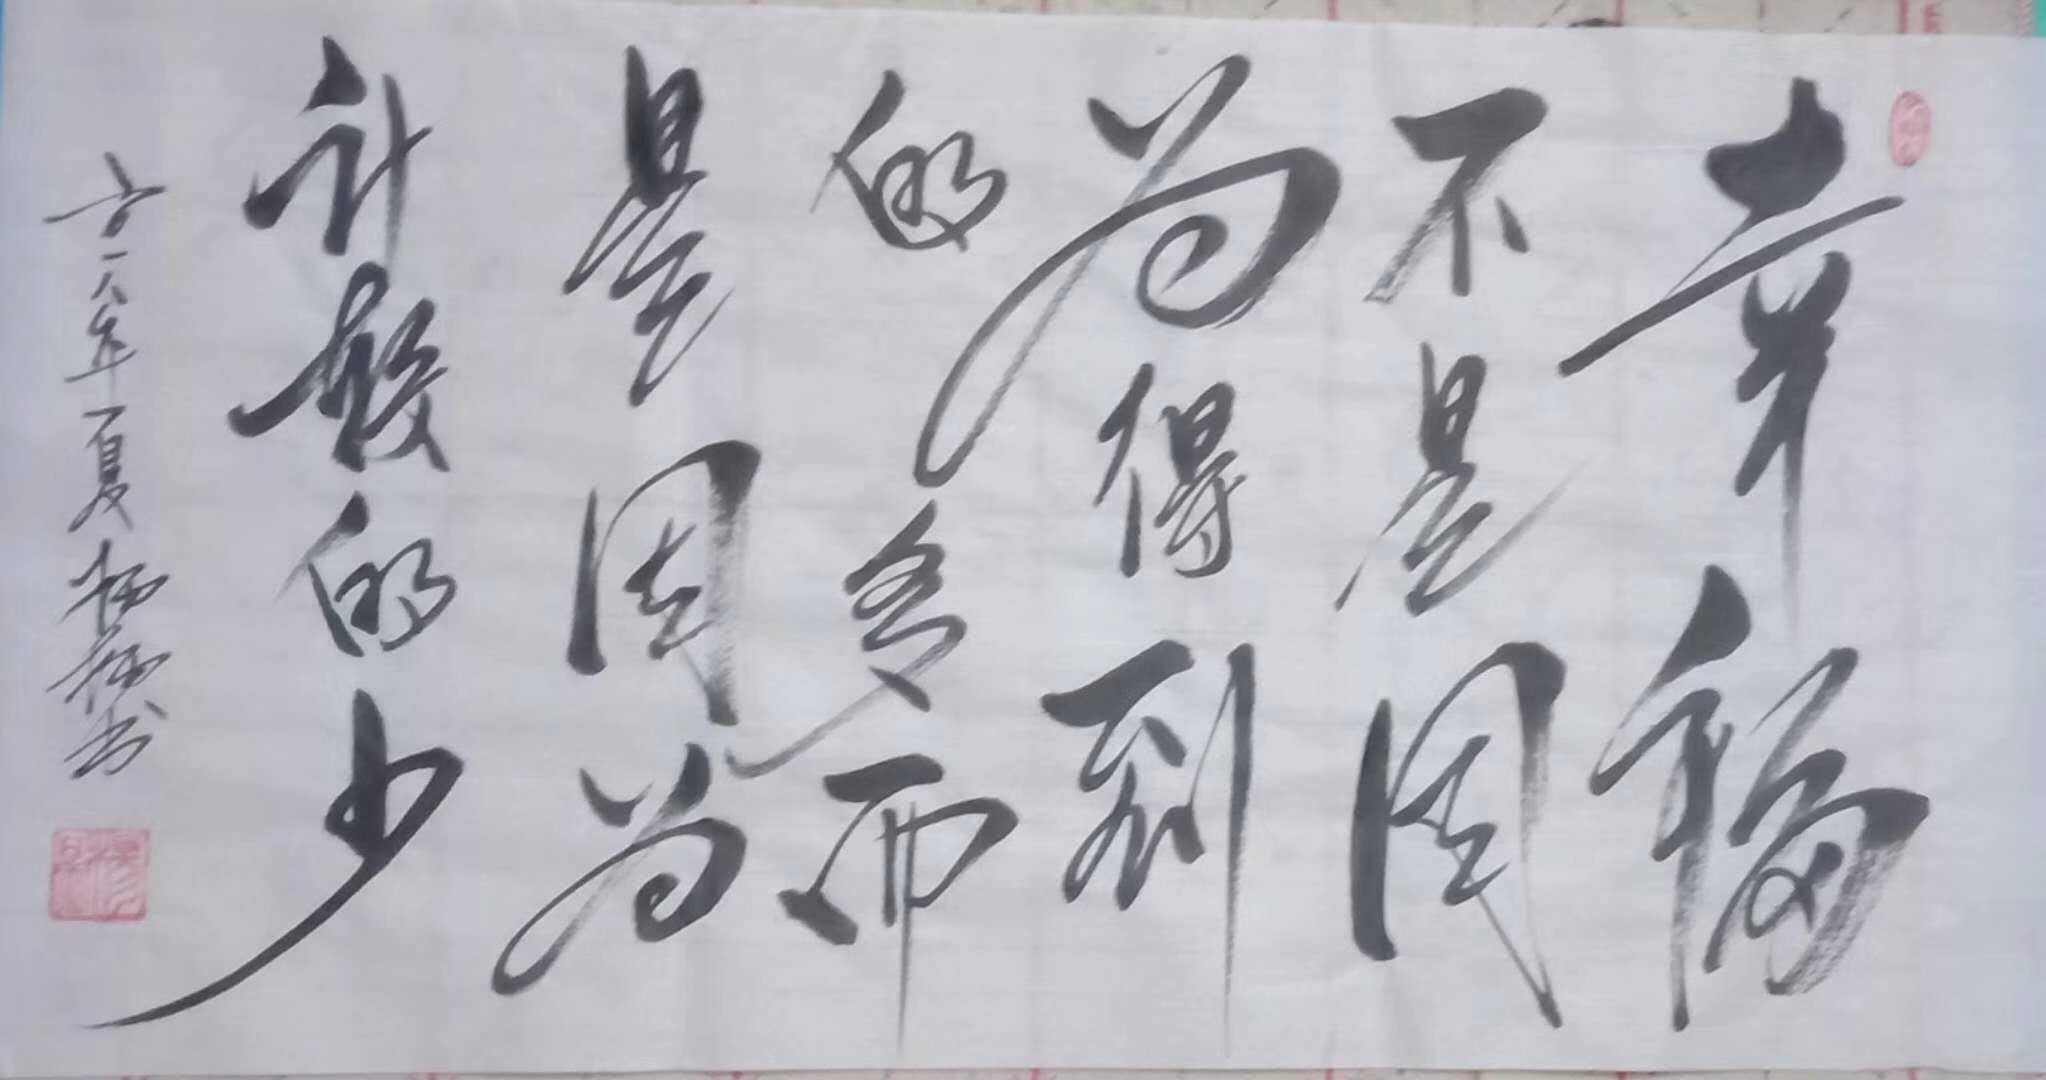 幸福
不是因
为得到
的多而
是因为
计较的少
二〇一八年夏杨